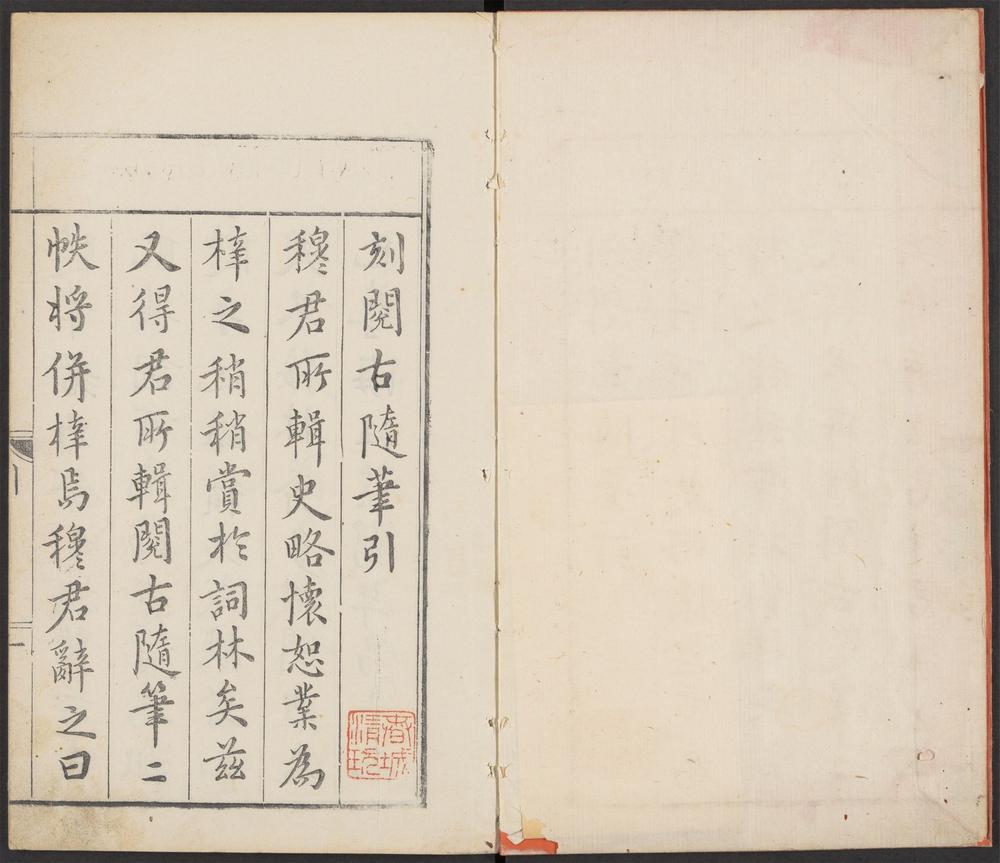 刻閱古隨筆引
穆君所輯史略懷恕業為
梓之稍稍賞於詞林矣茲
又得君所輯閱古隨筆二
帙將併梓焉穆君辭之曰
春城
清玩